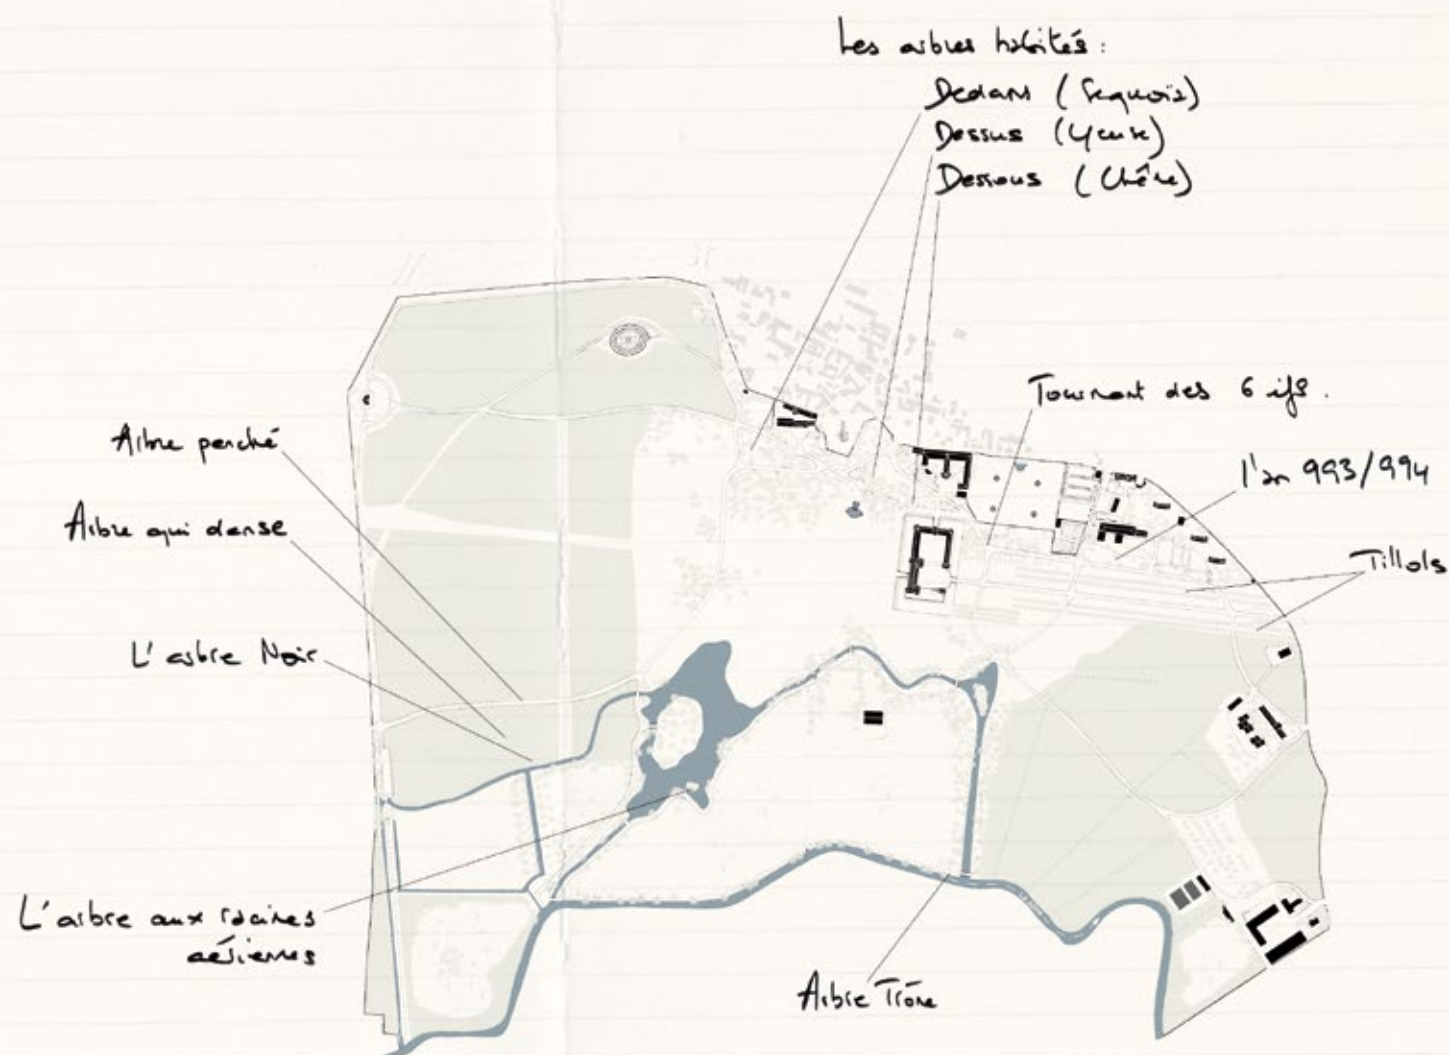 Les arbres habités :
Dedans (Sequoia)
Dessus (Yeuse)
Dessous (Chêne)
Tournant des 6 ifs.
l'an 993/994
Tillols
Arbre perché
Arbre qui danse
L'arbre Noir
L'arbre aux racines
aériennes
Arbre Trône